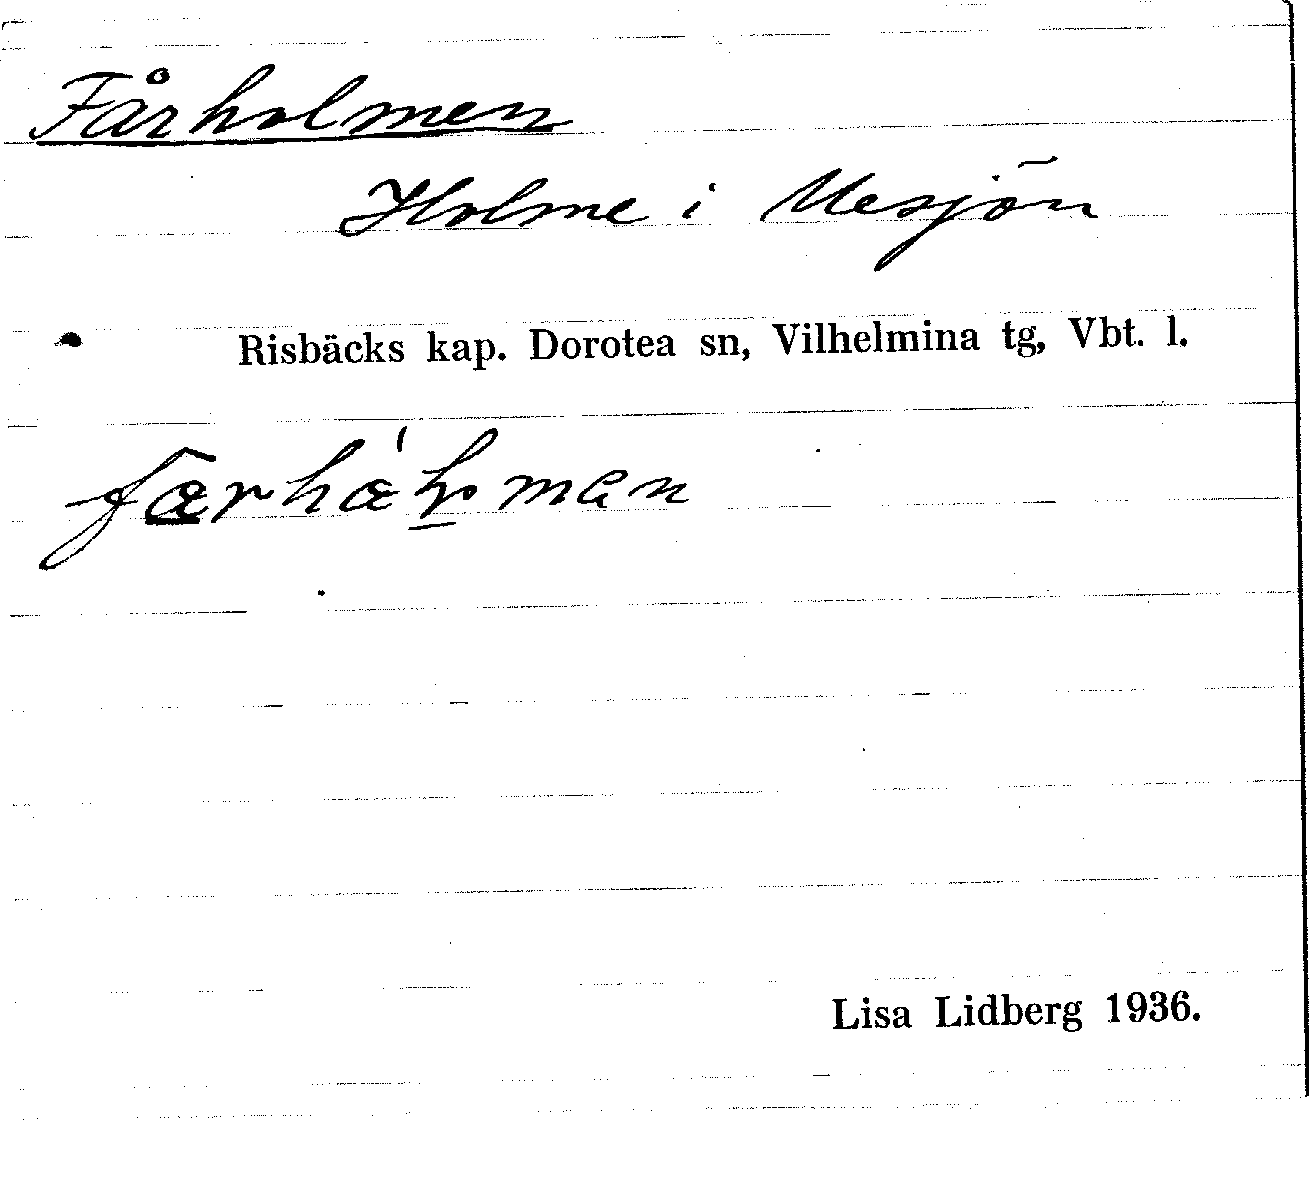 Fårholmen
Holme i Mesjön
Risbäcks kap. Dorotea sn, Vilhelmina tg, Vbt. l.
Lisa Lidberg 1936.